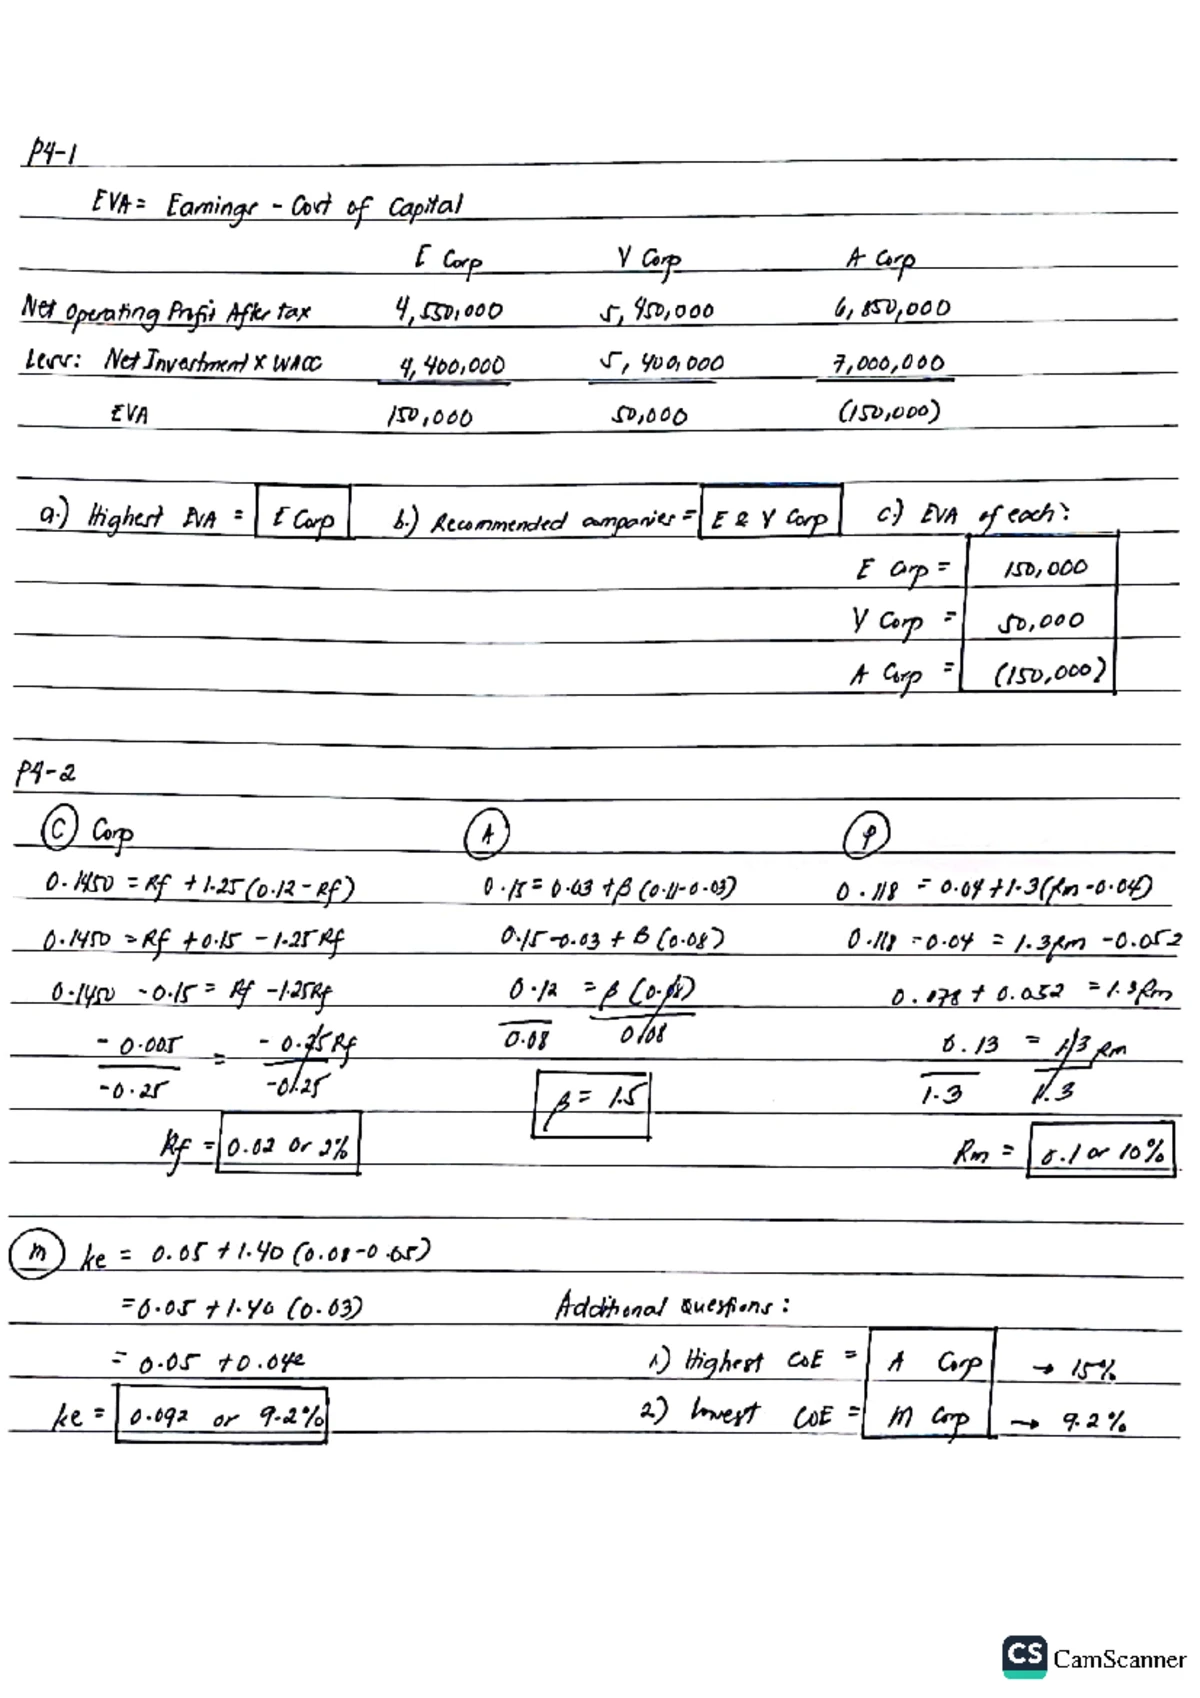 P4-1
EVA = Earnings - Cost of Capital
E Corp V Corp A Corp
Net Operating Profit After tax 4,550,000 5,450,000 6,850,000
Less: Net Investment x WACC 4,400,000 5,400,000 7,000,000
EVA 150,000 50,000 (150,000)
a.) Highest EVA = E Corp b.) Recommended companies = E & V Corp c.) EVA of each:
E Corp = 150,000
V Corp = 50,000
A Corp = (150,000)
P4-2
C Corp A P
0.1450 = Rf + 1.25 (0.12 - Rf) 0.15 = 0.03 + β (0.11-0.03) 0.118 = 0.04 + 1.3 (Rm - 0.04)
0.1450 = Rf + 0.15 - 1.25 Rf 0.15-0.03 + β (0.08) 0.118 - 0.04 = 1.3Rm - 0.052
0.1450 - 0.15 = Rf - 1.25Rf 0.12 = β (0.08) 0.078 + 0.052 = 1.3Rm
- 0.005 = - 0.25 Rf 0.08 0.08 0.13 = 1.3 Rm
-0.25 -0.25 β = 1.5 1.3 1.3
Rf = 0.02 or 2% Rm = 0.1 or 10%
M ke = 0.05 + 1.40 (0.08-0.05)
= 0.05 + 1.40 (0.03) Additional Questions:
= 0.05 + 0.042 1) Highest COE = A Corp → 15%
ke = 0.092 or 9.2% 2) Lowest COE = M Corp → 9.2%
CS CamScanner